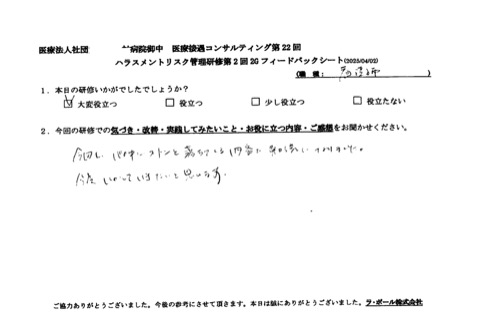 医療法人社団 病院御中 医療接遇コンサルティング第22回
ハラスメントリスク管理研修第2回2Gフィードバックシート(2025/04/02)
(職 種: 看護師 )
1．本日の研修いかがでしたでしょうか?
☑ 大変役立つ □ 役立つ □ 少し役立つ □ 役立たない
2．今回の研修での気づき・改善・実践してみたいこと・お役に立つ内容・ご感想をお聞かせください。
今回も ストンと落ちてくる内容に
今後 いかしていきたいと思います。
ご協力ありがとうございました。今後の参考にさせて頂きます。本日は誠にありがとうございました。 ラ・ポール株式会社